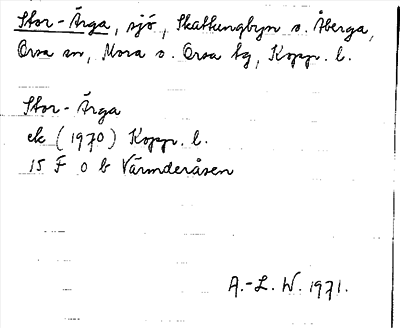 Stor-Ärga, sjö, Skattungbyn o. Åberga,
Orsa sn, Mora o. Orsa tg, Kopp. l.
Stor-Ärga
ek (1970) Kopp. l.
15 F 0 b Värmderåsen
A.-L. W. 1971.